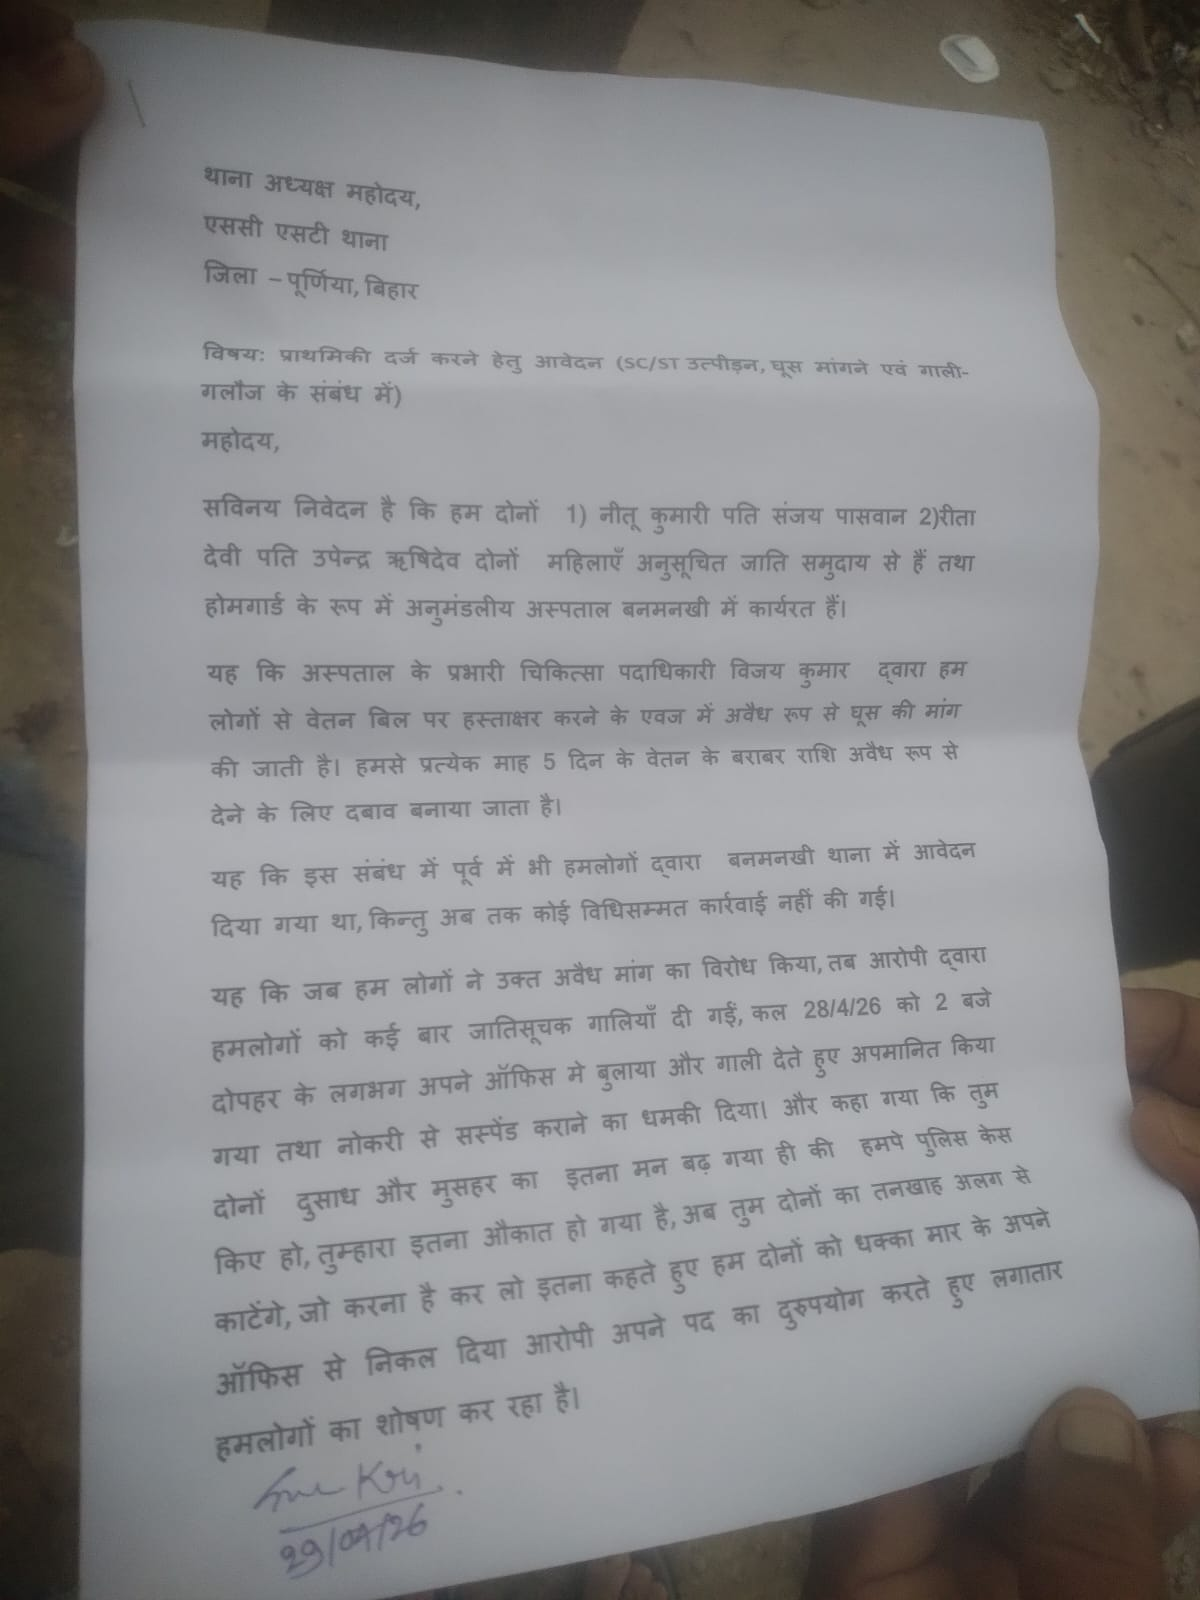 थाना अध्यक्ष महोदय,
एससी एसटी थाना
जिला – पूर्णिया, बिहार
विषय: प्राथमिकी दर्ज करने हेतु आवेदन (SC/ST उत्पीड़न, घूस मांगने एवं गाली-
गलौज के संबंध में)
महोदय,
सविनय निवेदन है कि हम दोनों 1) नीतू कुमारी पति संजय पासवान 2)रीता
देवी पति उपेन्द्र ऋषिदेव दोनों महिलाएँ अनुसूचित जाति समुदाय से हैं तथा
होमगार्ड के रूप में अनुमंडलीय अस्पताल बनमनखी में कार्यरत हैं।
यह कि अस्पताल के प्रभारी चिकित्सा पदाधिकारी विजय कुमार द्वारा हम
लोगों से वेतन बिल पर हस्ताक्षर करने के एवज में अवैध रूप से घूस की मांग
की जाती है। हमसे प्रत्येक माह 5 दिन के वेतन के बराबर राशि अवैध रूप से
देने के लिए दबाव बनाया जाता है।
यह कि इस संबंध में पूर्व में भी हमलोगों द्वारा बनमनखी थाना में आवेदन
दिया गया था, किन्तु अब तक कोई विधिसम्मत कार्रवाई नहीं की गई।
यह कि जब हम लोगों ने उक्त अवैध मांग का विरोध किया, तब आरोपी द्वारा
हमलोगों को कई बार जातिसूचक गालियाँ दी गईं, कल 28/4/26 को 2 बजे
दोपहर के लगभग अपने ऑफिस मे बुलाया और गाली देते हुए अपमानित किया
गया तथा नोकरी से सस्पेंड कराने का धमकी दिया। और कहा गया कि तुम
दोनों दुसाध और मुसहर का इतना मन बढ़ गया ही की हमपे पुलिस केस
किए हो, तुम्हारा इतना औकात हो गया है, अब तुम दोनों का तनखाह अलग से
काटेंगे, जो करना है कर लो इतना कहते हुए हम दोनों को धक्का मार के अपने
ऑफिस से निकल दिया आरोपी अपने पद का दुरुपयोग करते हुए लगातार
हमलोगों का शोषण कर रहा है।
29/04/26